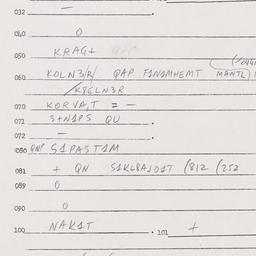 032 — .
040 O
050 KRAG+
060 KOLN3/R/ QAP F1N1MHEMT MANTL)
K8GLN3R
070 KORVA,T = —
071 S+N1PS QU .
072 — .
080 QNP S1PAST1M
081 + QN S1KL8A1O1T (812 (252
089 O
090 O
100 NAK1T . 101 +